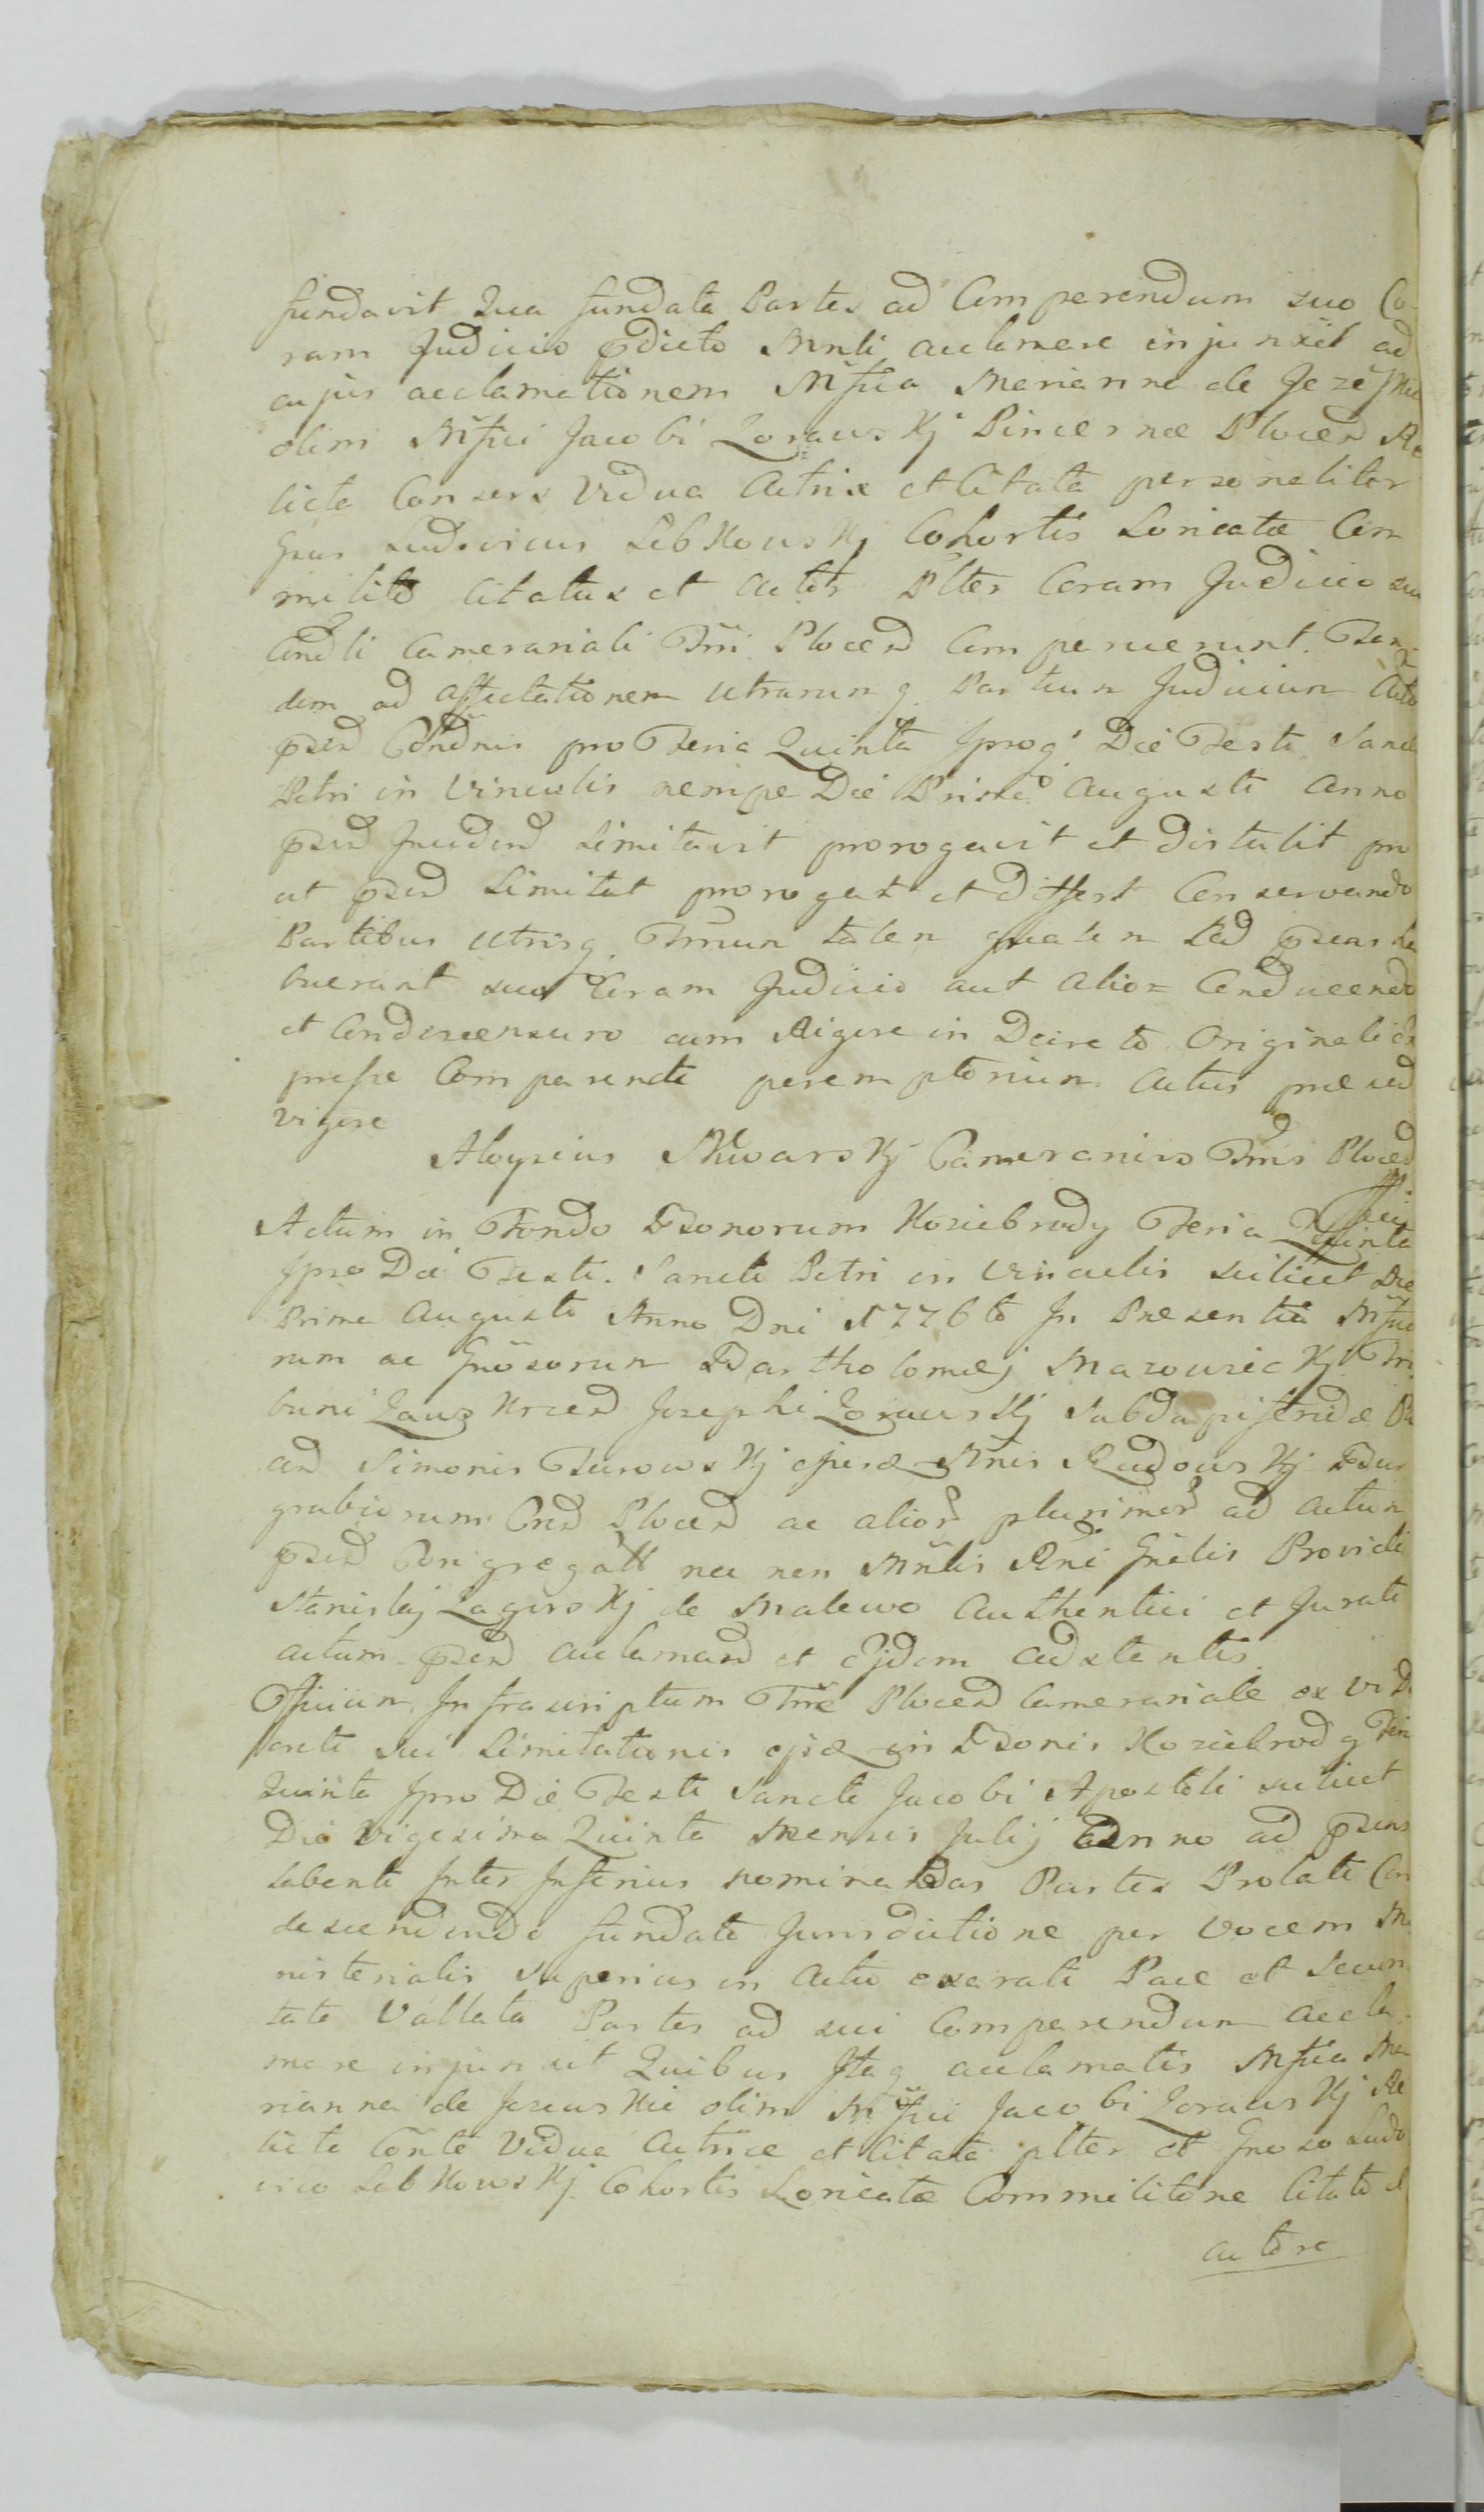 fundavit Qua fundata Partes ad Comperendum suo Co-
ram Judicio pdicto Mnli acclamare injunxit ad
cujus acclamationem Mfica Marianna de Jezews
olim Mfici Jacobi Zorawskj Pincernæ Plocen Re
licta Consors Vidua Actrix et Citata personaliter
Gsus Ludovicus Lebkowskj Cohortis Loricatæ Com
milito Citatus et Actor Plter Coram Judicio suo
Condli Camerariali Trri Plocen Comparuerunt. Tan-
dem ad affectationem utrarumq Partium Judicium Actu
psen Condnis pro Feria Quinta Ipsoq Die Festi Sancti
Petri in Vinculis nempe Die Prima Augusti Anno
psen inciden Limitavit prorogavit et Distulit pro
ut psen Limitat prorogat et differt Conservando
Partibus utrisq Trmum talem qualem ad psens ha
buerant suo Coram Judicio aut alio= Conducendo
et Condescensuro cum Rigore in Decreto Originali ex
presse Comparendi peremptorium Actus præsen
vigore
Aloysius Camerarius Trris Plocen
Actum in Fundo Bonorum Koziebrody Feria Quinta
Ipso Die Festi Sancti Petri in Vinculis scilicet Die
Prima Augusti Anno Dni 1776to In Præsentia Mfico
rum ac Gnosorum Bartholomæj Mazowieckj Tri
buni Zawskrzen Josephi Zorawskj Subdapiferidæ Pl
cen Simonis Turowskj ejusdæ Annis Rudowskj Bur
grabiorum Cren Plocen ac alior plurimor ad actum
psen Congregatt nec non Mnlis Rni Gnelis Providi
Stanislaj Lagowskj de Malewo Authentici et Jurati
actum psen acclaman et ejdem adstantis.
Officium Infrascriptum Trræ Plocen Camerariale ex vi De
creti sui Limitationis ejsdæ in Bonis Koziebrody Feria
Quinta Ipso Die Festi Sancti Jacobi Apostoli scilicet
Die Vigesima Quinta Mensis Julij Anno ad psens
labente Inter Inferius nominandas Partes Prolati Con
descendendo fundata Jurisdictione per Vocem Mi
nisterialis superius in Actu exarati Pace et Securi
tate Vallata Partes ad sui Comparendum accla-
mare injunxit Quibus Itaq acclamatis Mfica Ma
rianna de Jezewskie olim Mfici Jacobi Zorawskj Re
licta Conte Vidua Actrice et Citata plter et Gnoso Ludo
vico Lebkowskj Cohortis Loricatæ Commilitone Citato et
actore